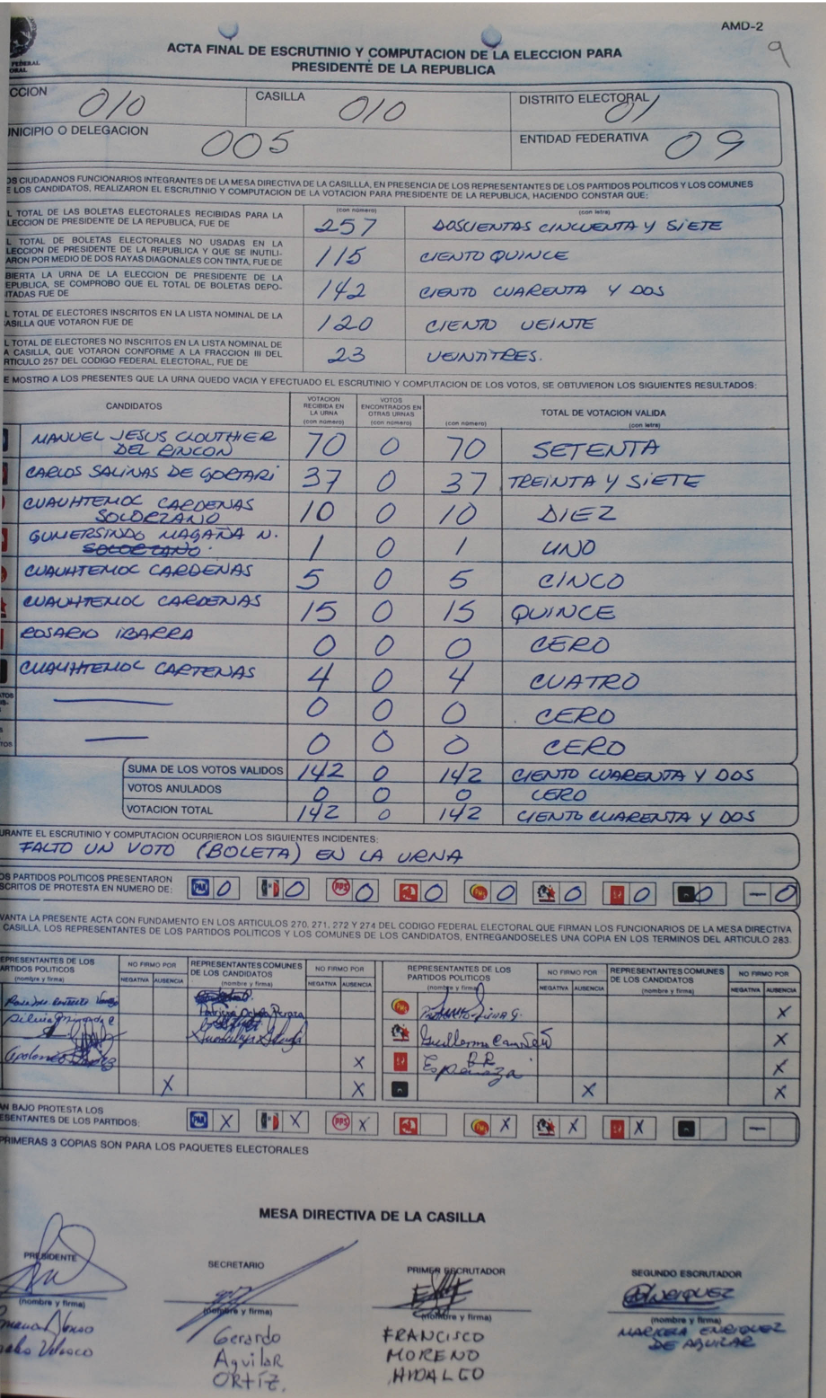 AMD-2
9
ACTA FINAL DE ESCRUTINIO Y COMPUTACION DE LA ELECCION PARA
PRESIDENTE DE LA REPUBLICA
CCION 010
CASILLA 010
DISTRITO ELECTORAL 01
UNICIPIO O DELEGACION 005
ENTIDAD FEDERATIVA 09
OS CIUDADANOS FUNCIONARIOS INTEGRANTES DE LA MESA DIRECTIVA DE LA CASILLLA, EN PRESENCIA DE LOS REPRESENTANTES DE LOS PARTIDOS POLITICOS Y LOS COMUNES
E LOS CANDIDATOS, REALIZARON EL ESCRUTINIO Y COMPUTACION DE LA VOTACION PARA PRESIDENTE DE LA REPUBLICA, HACIENDO CONSTAR QUE:
(con número) (con letra)
L TOTAL DE LAS BOLETAS ELECTORALES RECIBIDAS PARA LA
LECCION DE PRESIDENTE DE LA REPUBLICA, FUE DE
257 DOSCIENTAS CINCUENTA Y SIETE
L TOTAL DE BOLETAS ELECTORALES NO USADAS EN LA
LECCION DE PRESIDENTE DE LA REPUBLICA Y QUE SE INUTILI-
ARON POR MEDIO DE DOS RAYAS DIAGONALES CON TINTA, FUE DE
115 CIENTO QUINCE
BIERTA LA URNA DE LA ELECCION DE PRESIDENTE DE LA
EPUBLICA, SE COMPROBO QUE EL TOTAL DE BOLETAS DEPO-
ITADAS FUE DE
142 CIENTO CUARENTA Y DOS
L TOTAL DE ELECTORES INSCRITOS EN LA LISTA NOMINAL DE LA
ASILLA QUE VOTARON FUE DE
120 CIENTO VEINTE
L TOTAL DE ELECTORES NO INSCRITOS EN LA LISTA NOMINAL DE
A CASILLA, QUE VOTARON CONFORME A LA FRACCION III DEL
RTICULO 257 DEL CODIGO FEDERAL ELECTORAL, FUE DE
23 VEINTITRES.
E MOSTRO A LOS PRESENTES QUE LA URNA QUEDO VACIA Y EFECTUADO EL ESCRUTINIO Y COMPUTACION DE LOS VOTOS, SE OBTUVIERON LOS SIGUIENTES RESULTADOS:
CANDIDATOS
VOTACION RECIBIDA EN LA URNA (con número)
VOTOS ENCONTRADOS EN OTRAS URNAS (con número)
TOTAL DE VOTACION VALIDA
(con número) (con letra)
MANUEL JESUS CLOUTHIER DEL RINCON 70 0 70 SETENTA
CARLOS SALINAS DE GORTARI 37 0 37 TREINTA Y SIETE
CUAUHTEMOC CARDENAS SOLORZANO 10 0 10 DIEZ
GUMERSINDO MAGAÑA N. 1 0 1 UNO
CUAUHTEMOC CARDENAS 5 0 5 CINCO
CUAUHTEMOC CARDENAS 15 0 15 QUINCE
ROSARIO IBARRA 0 0 0 CERO
CUAUHTEMOC CARTENAS 4 0 4 CUATRO
0 0 0 CERO
0 0 0 CERO
SUMA DE LOS VOTOS VALIDOS 142 0 142 CIENTO CUARENTA Y DOS
VOTOS ANULADOS 0 0 0 CERO
VOTACION TOTAL 142 0 142 CIENTO CUARENTA Y DOS
URANTE EL ESCRUTINIO Y COMPUTACION OCURRIERON LOS SIGUIENTES INCIDENTES:
FALTO UN VOTO (BOLETA) EN LA URNA
OS PARTIDOS POLITICOS PRESENTARON
SCRITOS DE PROTESTA EN NUMERO DE:
PAN 0 0 PPS 0 0 0 0 0 0 — 0
VANTA LA PRESENTE ACTA CON FUNDAMENTO EN LOS ARTICULOS 270, 271, 272 Y 274 DEL CODIGO FEDERAL ELECTORAL QUE FIRMAN LOS FUNCIONARIOS DE LA MESA DIRECTIVA
CASILLA, LOS REPRESENTANTES DE LOS PARTIDOS POLITICOS Y LOS COMUNES DE LOS CANDIDATOS, ENTREGANDOSELES UNA COPIA EN LOS TERMINOS DEL ARTICULO 283.
EPRESENTANTES DE LOS ARTIDOS POLITICOS (nombre y firma)
NO FIRMO POR NEGATIVA AUSENCIA
REPRESENTANTES COMUNES DE LOS CANDIDATOS (nombre y firma)
NO FIRMO POR NEGATIVA AUSENCIA
REPRESENTANTES DE LOS PARTIDOS POLITICOS (nombre y firma)
NO FIRMO POR NEGATIVA AUSENCIA
REPRESENTANTES COMUNES DE LOS CANDIDATOS (nombre y firma)
NO FIRMO POR NEGATIVA AUSENCIA
X
X
Esperanza
X X
X X X X
AN BAJO PROTESTA LOS
ESENTANTES DE LOS PARTIDOS:
PAN X X PPS X X X X —
PRIMERAS 3 COPIAS SON PARA LOS PAQUETES ELECTORALES
MESA DIRECTIVA DE LA CASILLA
PRESIDENTE
(nombre y firma)
SECRETARIO
(nombre y firma)
Gerardo
Aguilar
ORTIZ.
PRIMER ESCRUTADOR
(nombre y firma)
FRANCISCO
MORENO
HIDALGO
SEGUNDO ESCRUTADOR
(nombre y firma)
MARICELA ENRIQUEZ
DE AGUILAR